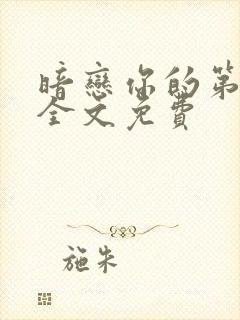 暗戀你的第
全文免費
施朱